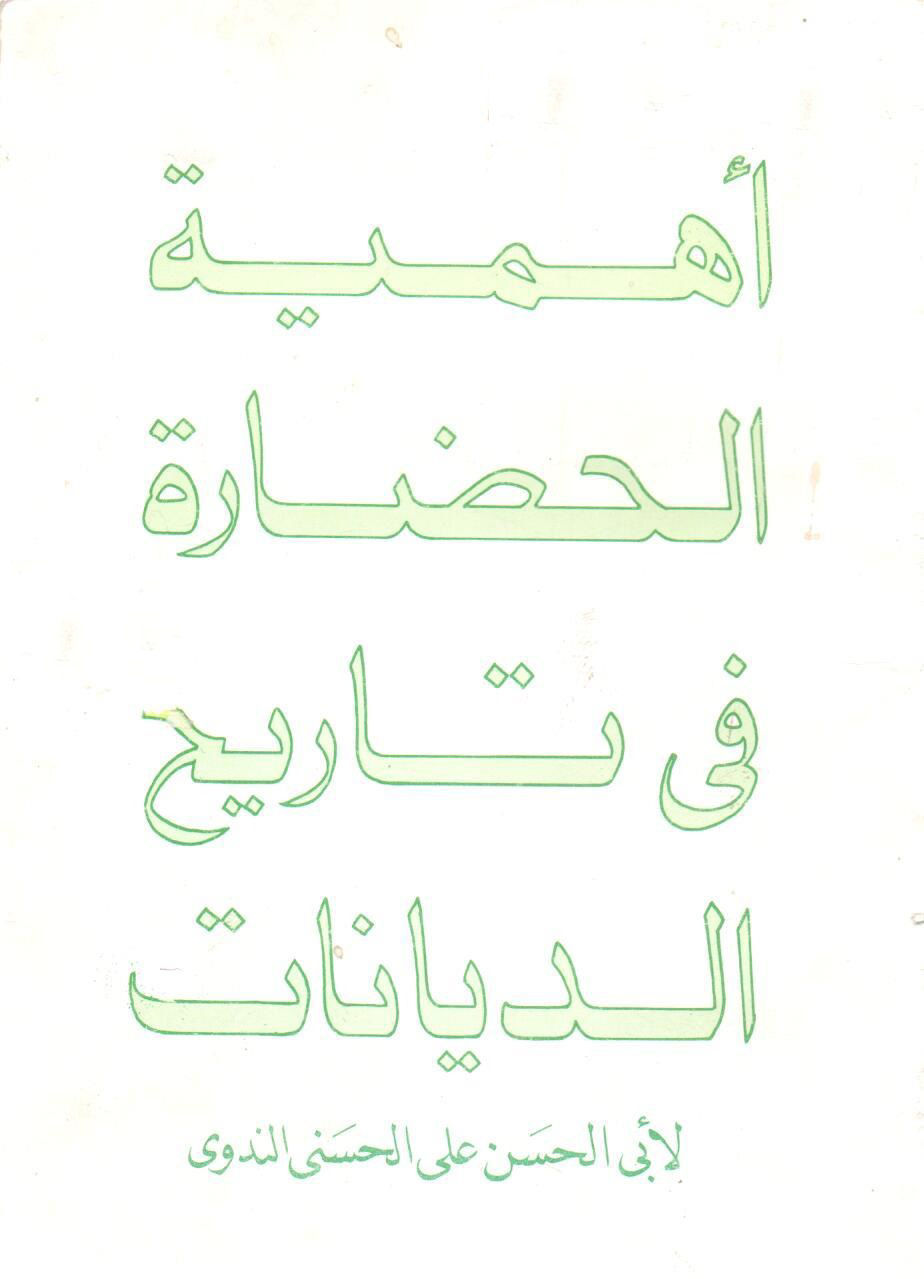 أهمية
الحضارة
فى تاريخ
الديانات
لأبى الحسَن على الحسَنى الندوى